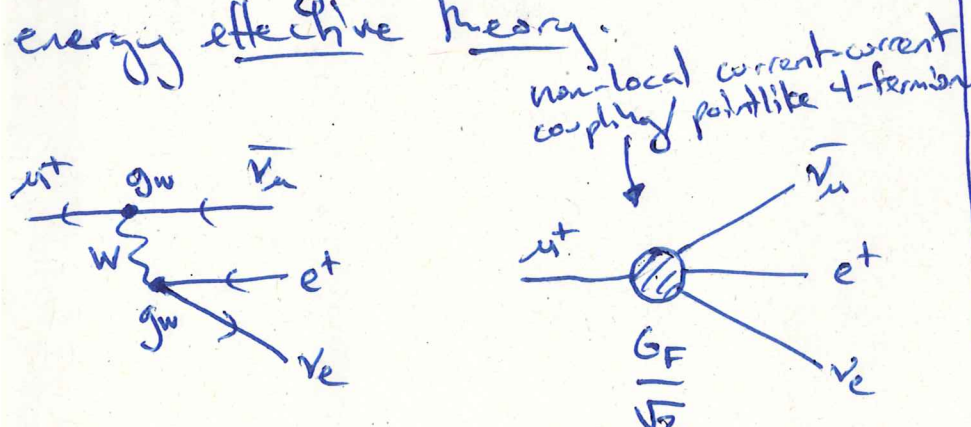 energy effective theory.
non-local current-current
coupling/pointlike 4-fermion
μ+ gw ν̄μ
W
e+
gw
νe
ν̄μ
μ+
e+
GF
√2
νe